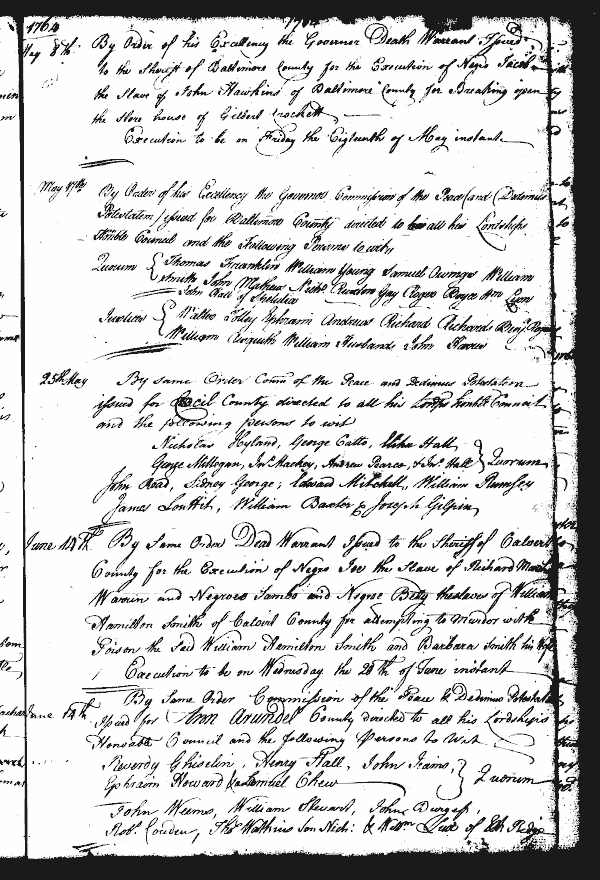 1764
May 8th. By Order of his Excellency the Governor Death Warrant Issued
to the Sheriff of Baltimore County for the Execution of Negro Jacob
the Slave of John Hawkins of Baltimore County for Breaking open
the Store house of Gilbert Crockett
Execution to be on Friday the Eigteenth of May instant
May 17th By Order of his Excellency the Governor Commission of the Peace (and Dedimus
Potestatem) issued for Baltimore County directed to all his Lordships
Honble Council and the Following Persons to wit,
Quorum { Thomas Franklin William Young Samuel Owings William
Smith John Mathews Nichs Ruxton Gay Rogers Boyce Wm
John Hall of
Justices { Walter Tolley Ephraim Andrews Richard Richards Benjn Rogers
William William Husbands John
25th May By same Order Comn of the Peace and Dedimus Potestatem
issued for Cecil County directed to all his Lordps honble Council
and the following persons to wit
Nicholas Hyland, George Catto, Hall
George Milligan, Jno. Mackey, Andrew Pearce, & Jno. Hall } Quorum
John Read, Sidney George, Edward Mitchell, William Rumsey
James William Baxter & Joseph Gilpin
June 14th By Same Order Dead Warrant Issued to the Sheriff of Calvert
County for the Execution of Negro Joe the Slave of Richard
and Negroes Sambo and Negroe Betty the slaves of William
Hamilton Smith of Calvert County for attempting to Murder with
Poison the Said William Hamilton Smith and Barbara Smith his Wife
Execution to be on Wednesday the 20th of June instant
June 14th By Same Order Commission of the Peace & Dedimus Potestatem
Issued for Ann Arundel County directed to all his Lordships
Honoable Council and the following Persons to Wit
Reverdy Ghiselin, Henry Hall, John
Ephraim Howard & Samuel Chew } Quorum
John Weems, William Steuart, John Burgess,
Robt. Couden, Thos Watkins Son Nich: & Wm of